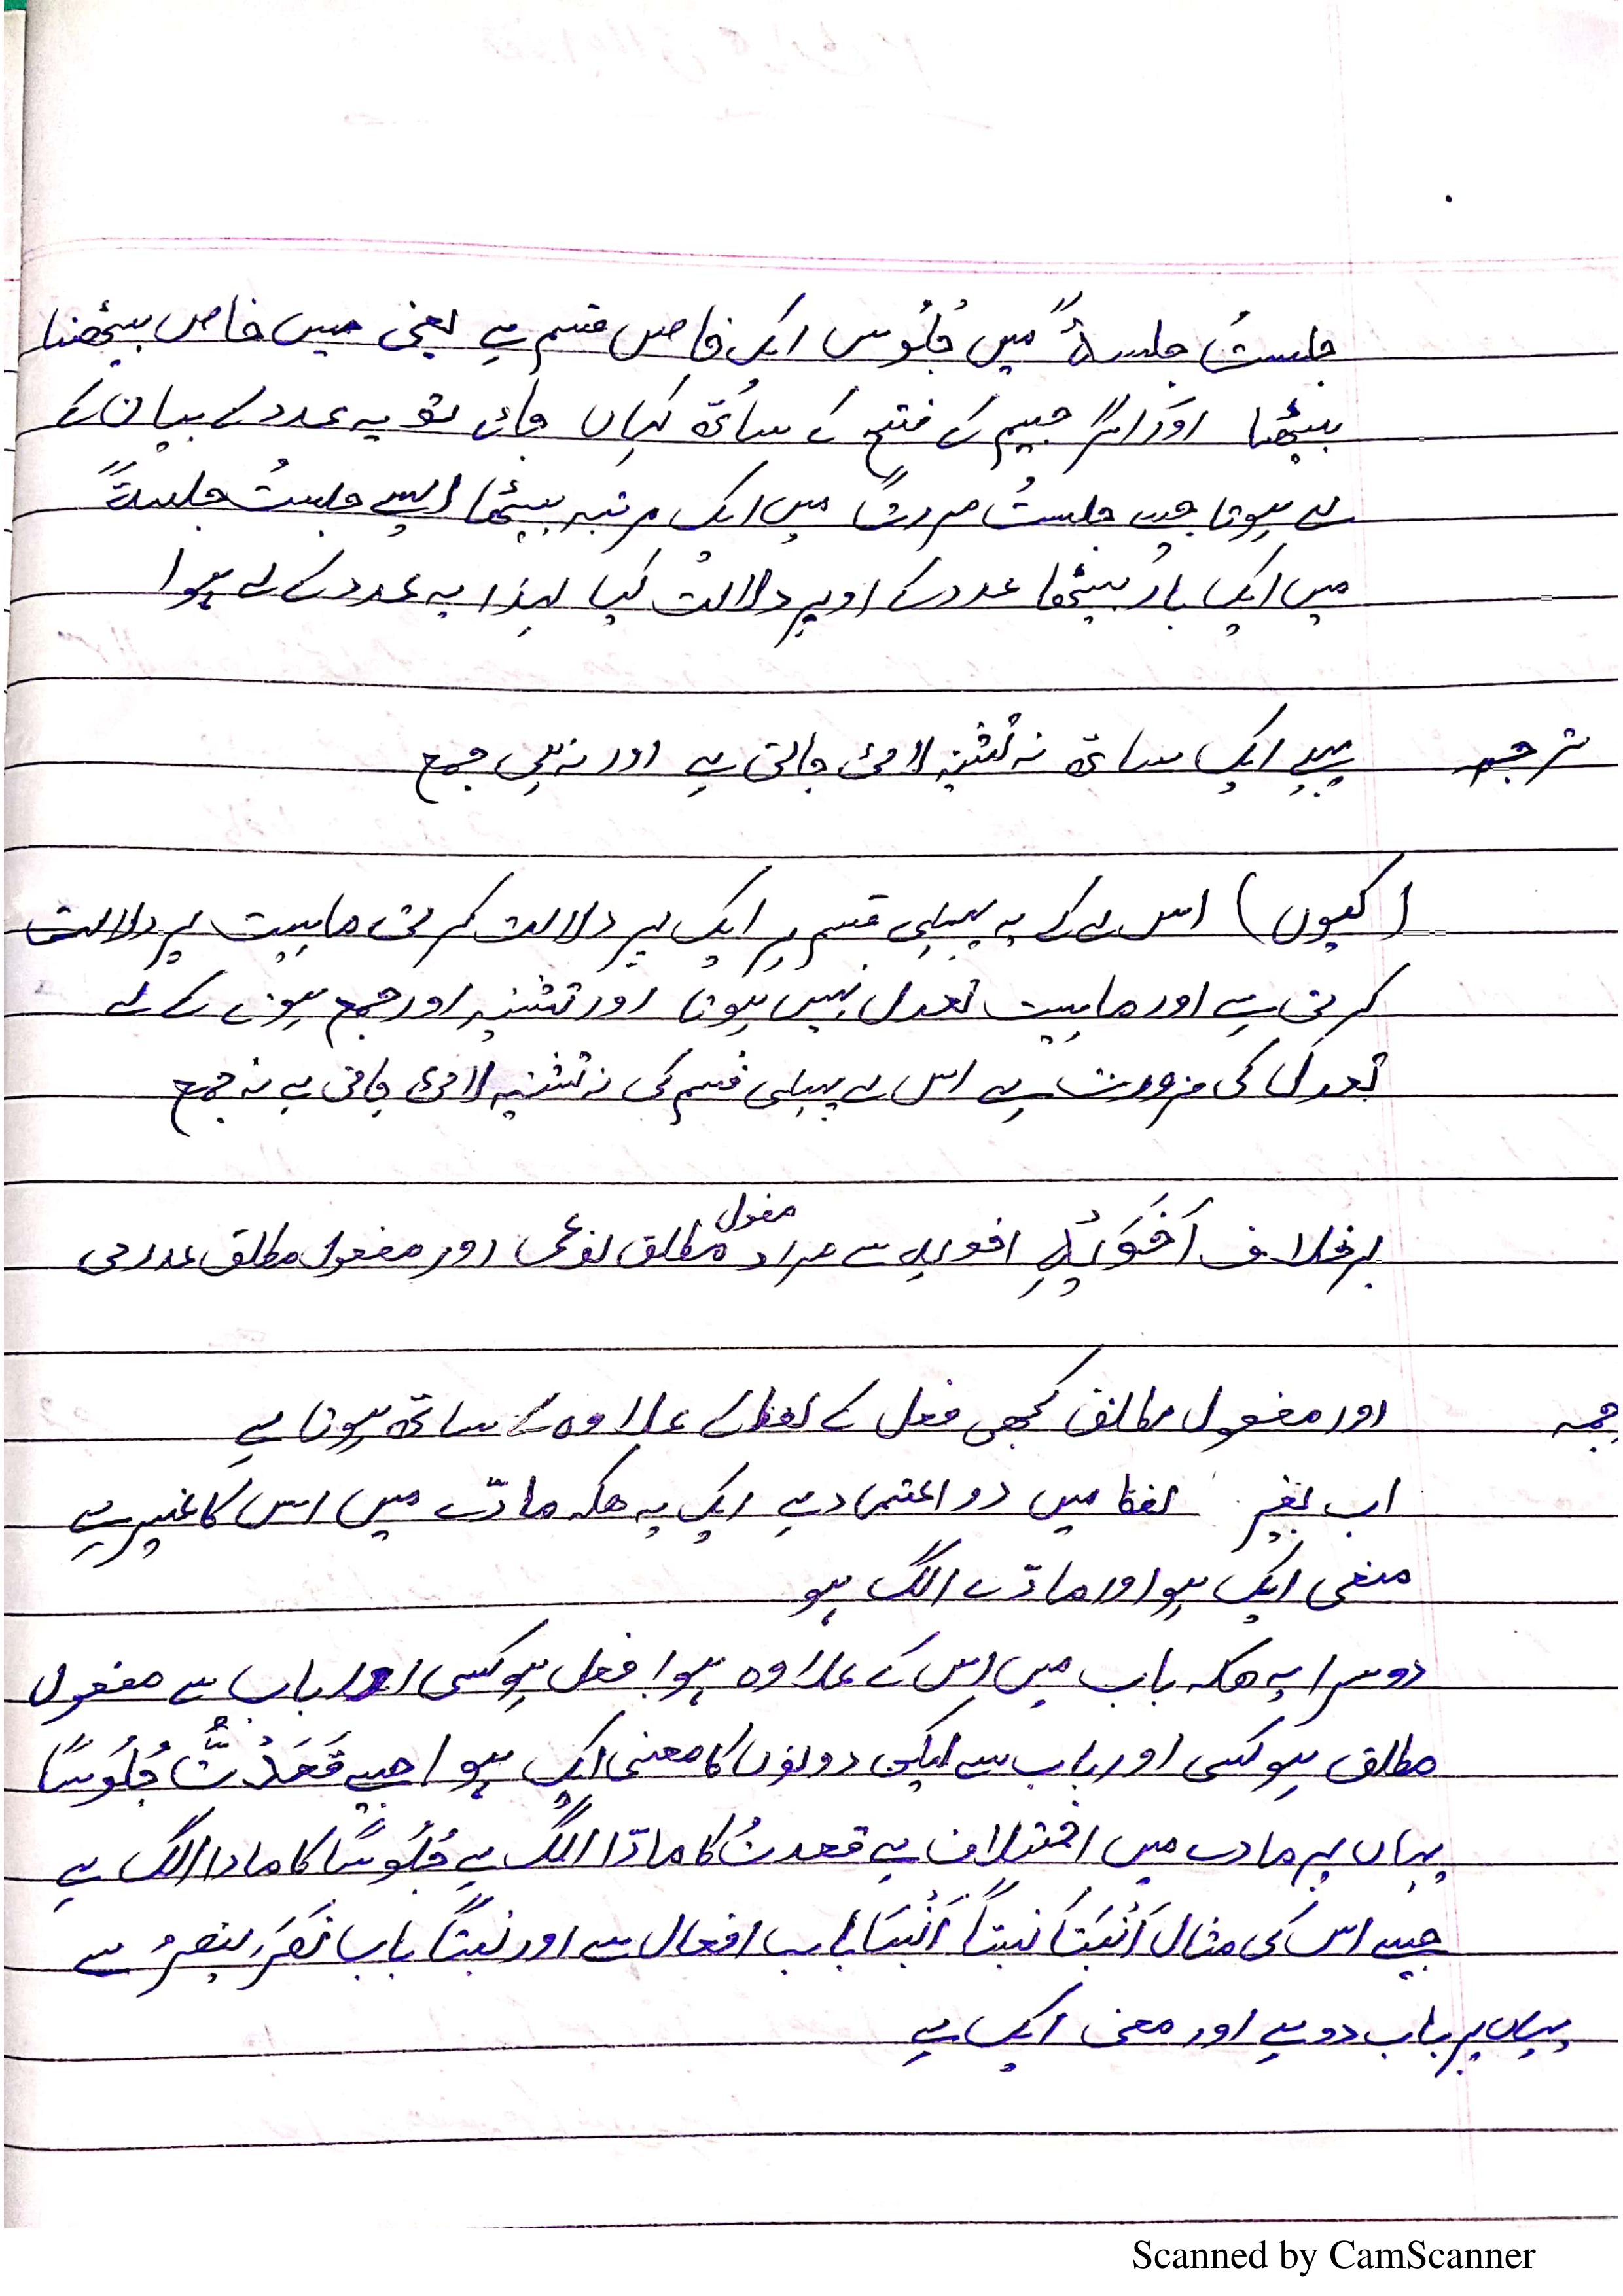 جلستُ جلسۃً میں جُلُوس ایک خاص قسم ہے یعنی میں خاص بیٹھنا
بیٹھا اور اگر جیم کے فتح کے ساتھ کہاں جائے تو یہ عدد کے بیان کے
لے ہوتا جیسے جلستُ مرۃً میں ایک مرتبہ بیٹھا ایسے جلستُ جلسۃً
میں ایک بار بیٹھا عدد کے اوپر دلالت کیا لہذا یہ عدد کے لے ہوا
ترجمہ پہلے ایک ساتھ نہ تثنیہ لائی جاتی ہے اور نہ ہی جمع
(کیوں) اس لے کے یہ پہلی قسم ہر ایک پر دلالت کرتی ماہیت پر دلالت
کرتی ہے اور ماہیت تعدل نہیں ہوتا اور تثنیہ اور جمع ہونے کے لے
تعدل کی ضرورت ہے اس لے پہلی قسم کی نہ تثنیہ لائی جاتی ہے نہ جمع
برخلاف اَخَوَیْہِ اخویہ سے مراد مفول مطلق نوعی اور مفعول مطلق عددی
جمہ اور مفعول مطلق کبھی فعل کے لفظ کے علاوہ کے ساتھ ہوتا ہے
اب بغیر لفظ میں دو اعتماد ہے ایک یہ ھکہ مادّے میں اس کا غیر ہے
معنی ایک ہو اور مادّے الگ ہو
دوسرا یہ ھکہ باب میں اس کے علاوہ ہو، فعل ہو کسی اور باب سے مفعول
مطلق ہو کسی اور باب سے لیکن دونوں کا معنی ایک ہو جیسے قَعَدْتُ جُلُوسًا
یہاں پر مادے میں اختلاف ہے قعدتُ کا مادّا الگ ہے جُلُوسًا کا مادا الگ ہے
جیسے اس کی مثال اَنْبَتَا نبتاً اَنْبَتَا باب افعال سے اور نبتاً باب نَصَرَ ینصرُ سے
یہاں پر باب دو ہے اور معنی ایک ہے
Scanned by CamScanner